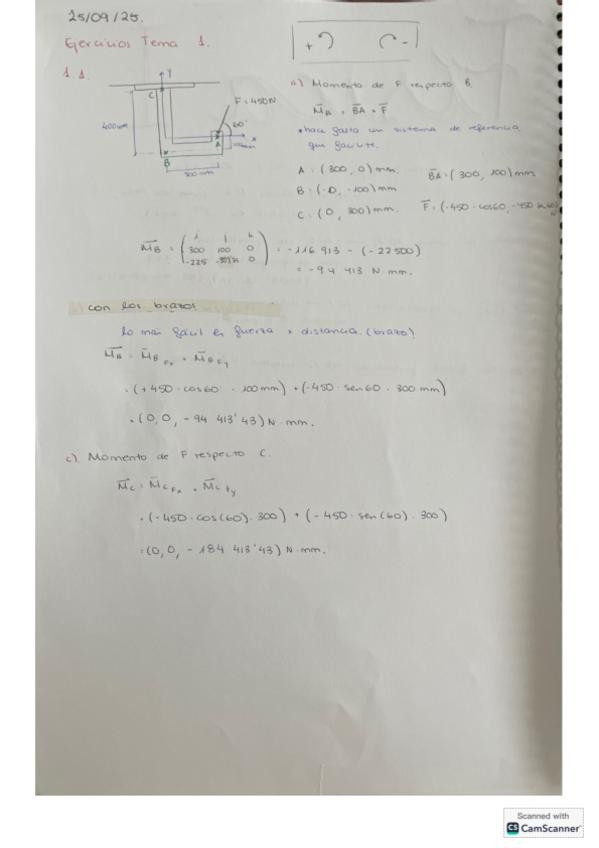 25/09/25.
Ejercicios Tema 1.
+ -
1.1.
Y
C
F=450N
60°
400mm
A
x
B
300 mm
a) Momento de F respecto B.
M_B = BA × F
* hace falta un sistema de referencia
que facilite.
A = (300, 0) mm.
BA = (300, 100) mm
B = (0, -100) mm
C = (0, 300) mm.
F = (-450 · cos60, -450 sen60)
M_B = ( i j k
300 100 0 = -116 913 - (-22500)
-225 0 ) = -94 413 N·mm.
con los brazos
lo más fácil es fuerza × distancia (brazo)
M_B = M_B Fx + M_B Fy
= (+450 · cos60 · 100mm) + (-450 · sen60 · 300 mm)
= (0, 0, -94 413'43) N·mm.
c) Momento de F respecto C.
M_C = M_C Fx + M_C Fy
= (-450 · cos(60) · 300) + (-450 · sen(60) · 300)
= (0, 0, -184 413'43) N·mm.
Scanned with
CS CamScanner